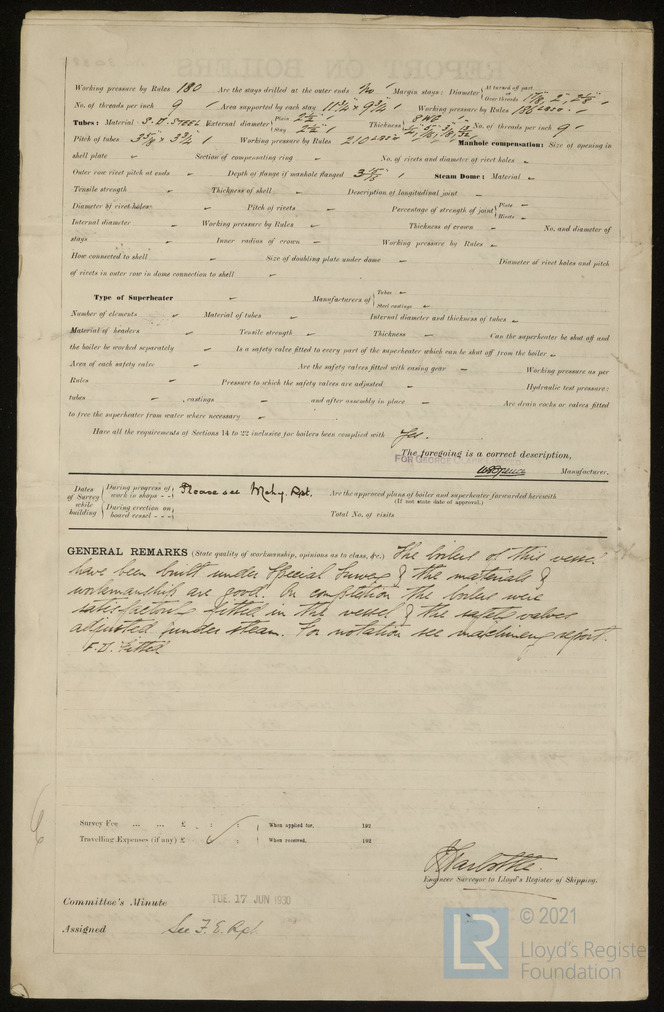 Working pressure by Rules 180 Are the stays drilled at the outer ends No Margin stays: Diameter { At turned off part, or Over threads 1 7/8", 2", 2 1/8"
No. of threads per inch 9 Area supported by each stay 11 3/4" × 9 3/4" Working pressure by Rules 186
Tubes: Material S.D. STEEL External diameter { Plain 2 1/2" Stay 2 1/2" Thickness { 8 WG No. of threads per inch 9
Pitch of tubes 3 5/8" × 3 3/4" Working pressure by Rules 210 Manhole compensation: Size of opening in
shell plate - Section of compensating ring - No. of rivets and diameter of rivet holes -
Outer row rivet pitch at ends - Depth of flange if manhole flanged Steam Dome: Material -
Tensile strength - Thickness of shell - Description of longitudinal joint -
Diameter of rivet holes - Pitch of rivets - Percentage of strength of joint { Plate - Rivets -
Internal diameter - Working pressure by Rules - Thickness of crown - No. and diameter of
stays - Inner radius of crown - Working pressure by Rules -
How connected to shell - Size of doubling plate under dome - Diameter of rivet holes and pitch
of rivets in outer row in dome connection to shell -
Type of Superheater - Manufacturers of { Tubes - Steel castings -
Number of elements - Material of tubes - Internal diameter and thickness of tubes -
Material of headers - Tensile strength - Thickness - Can the superheater be shut off and
the boiler be worked separately - Is a safety valve fitted to every part of the superheater which can be shut off from the boiler -
Area of each safety valve - Are the safety valves fitted with easing gear - Working pressure as per
Rules - Pressure to which the safety valves are adjusted - Hydraulic test pressure:
tubes - , castings - and after assembly in place - Are drain cocks or valves fitted
to free the superheater from water where necessary -
Have all the requirements of Sections 14 to 22 inclusive for boilers been complied with Yes.
The foregoing is a correct description,
FOR GEORGE CLARK
Manufacturer.
Dates of Survey while building { During progress of work in shops - - Please see Mchy. Rpt. Are the approved plans of boiler and superheater forwarded herewith
(If not state date of approval.)
During erection on board vessel - - - Total No. of visits
GENERAL REMARKS (State quality of workmanship, opinions as to class, &c.) The boilers of this vessel
have been built under Special Survey & the materials &
workmanship are good. On completion the boilers were
satisfactorily fitted in the vessel & the safety valves
adjusted under steam. For notation see machinery report.
F.D. Fitted
Survey Fee ... ... £ : : When applied for, 192
Travelling Expenses (if any) £ : : When received, 192
Engineer Surveyor to Lloyd's Register of Shipping.
Committee's Minute TUE. 17 JUN 1930
Assigned See F.E. Rpt.
LR © 2021
Lloyd's Register
Foundation